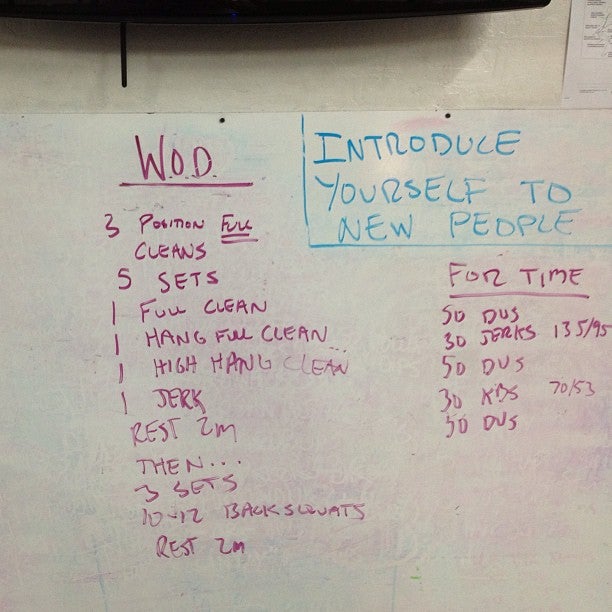 W.O.D.
3 POSITION FULL
CLEANS
5 SETS
1 FULL CLEAN
1 HANG FULL CLEAN
1 HIGH HANG CLEAN
1 JERK
REST 2M
THEN...
3 SETS
10-12 BACK SQUATS
REST 2M
INTRODUCE
YOURSELF TO
NEW PEOPLE
FOR TIME
50 DUS
30 JERKS 135/95
50 DUS
30 KBS 70/53
50 DUS